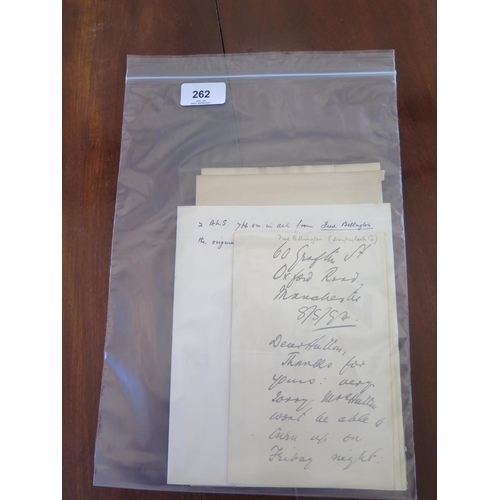 262
2 A.L.S. 7pp. om in all from Fred Billington
the original
Fred Billington (D'oyly Carte Co)
60 Grafton St
Oxford Road,
Manchester
8/5/97.
Dear Hallen,
Thanks for
yours: very
sorry Mrs Hallen
wont be able to
turn up on
Friday night: